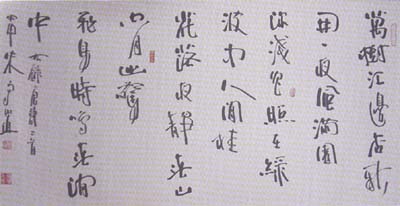 萬樹江邊杏新
開一夜風滿園
深淺色照在綠
波中人閒桂
花落夜靜春山
空月出驚
鳥時鳴春澗
中 右錄唐詩二首